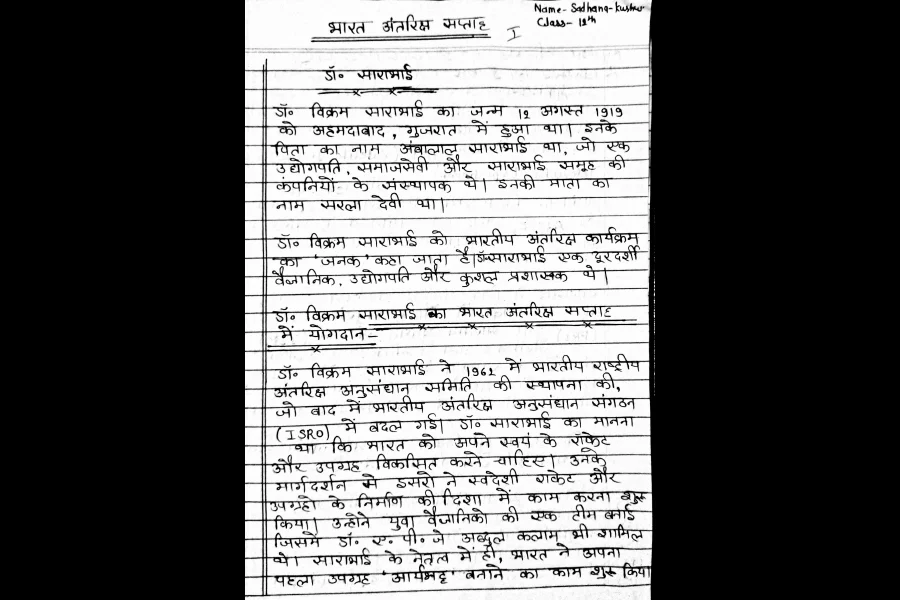 Name- Sadhana-kushw
Class- 12th
भारत अंतरिक्ष सप्ताह
I
डॉ॰ साराभाई
डॉ॰ विक्रम साराभाई का जन्म 12 अगस्त 1919
को अहमदाबाद, गुजरात में हुआ था। इनके
पिता का नाम अंबालाल साराभाई था, जो एक
उद्योगपति, समाजसेवी और साराभाई समूह की
कंपनियों के संस्थापक थे। इनकी माता का
नाम सरला देवी था।
डॉ॰ विक्रम साराभाई को भारतीय अंतरिक्ष कार्यक्रम
का 'जनक' कहा जाता है। डॉ॰साराभाई एक दूरदर्शी
वैज्ञानिक, उद्योगपति और कुशल प्रशासक थे।
डॉ॰ विक्रम साराभाई का भारत अंतरिक्ष सप्ताह
में योगदान-
डॉ॰ विक्रम साराभाई ने 1962 में भारतीय राष्ट्रीय
अंतरिक्ष अनुसंधान समिति की स्थापना की,
जो बाद में भारतीय अंतरिक्ष अनुसंधान संगठन
(ISRO) में बदल गई। डॉ॰ साराभाई का मानना
था कि भारत को अपने स्वयं के रॉकेट
और उपग्रह विकसित करने चाहिए। उनके
मार्गदर्शन में इसरो ने स्वदेशी राकेट और
उपग्रहो के निर्माण की दिशा में काम करना शुरू
किया। उन्होने युवा वैज्ञानिको की एक टीम बनाई
जिसमें डॉ॰ ए॰ पी॰ जे अब्दुल कलाम भी शामिल
थे। साराभाई के नेतृत्व में ही, भारत ने अपना
पहला उपग्रह 'आर्यभट्ट' बनाने का काम शुरू किया